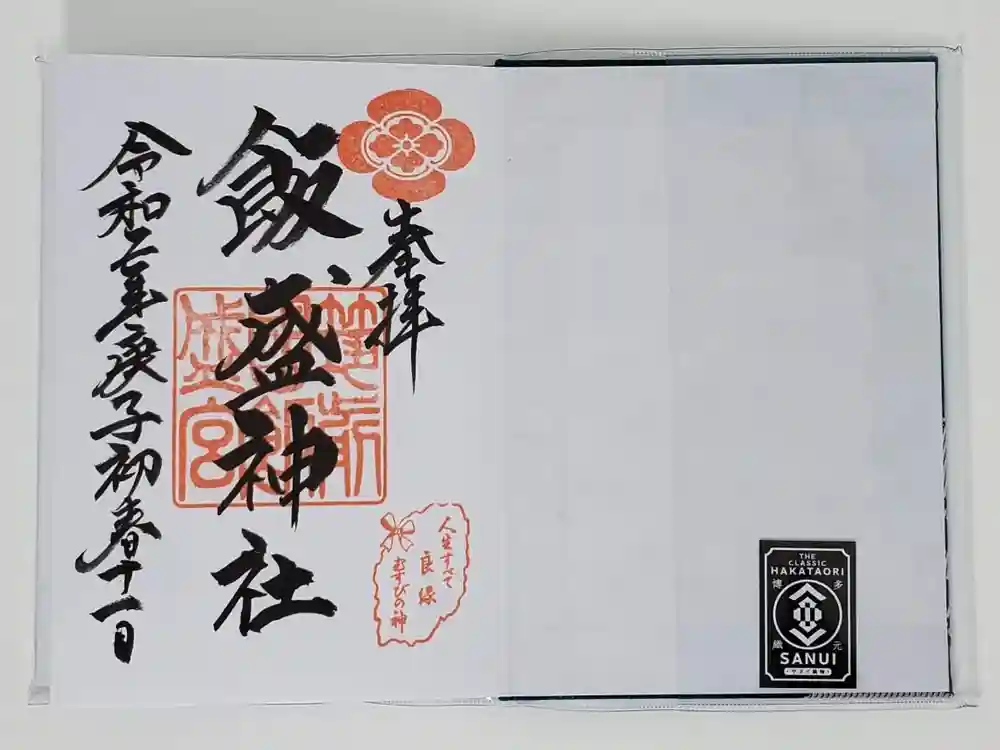 奉拝
飯盛神社
令和二年庚子初春十一日
人生すべて
良縁
むすびの神
THE
CLASSIC
HAKATAORI
博多
織元
SANUI